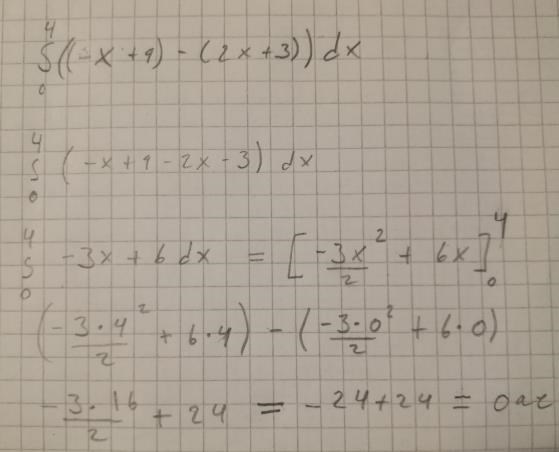 ∫₀⁴ ((-x + 9) - (2x + 3)) dx
∫₀⁴ (-x + 9 - 2x - 3) dx
∫₀⁴ -3x + 6 dx = [-3x²/2 + 6x]₀⁴
(-3·4²/2 + 6·4) - (-3·0²/2 + 6·0)
-3·16/2 + 24 = -24 + 24 = 0 ae